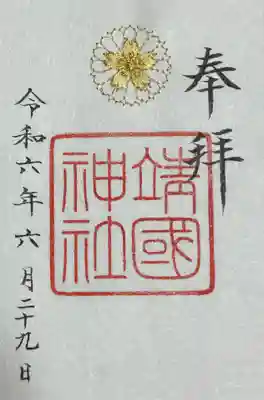 奉拝
靖國
神社
令和六年六月二十九日